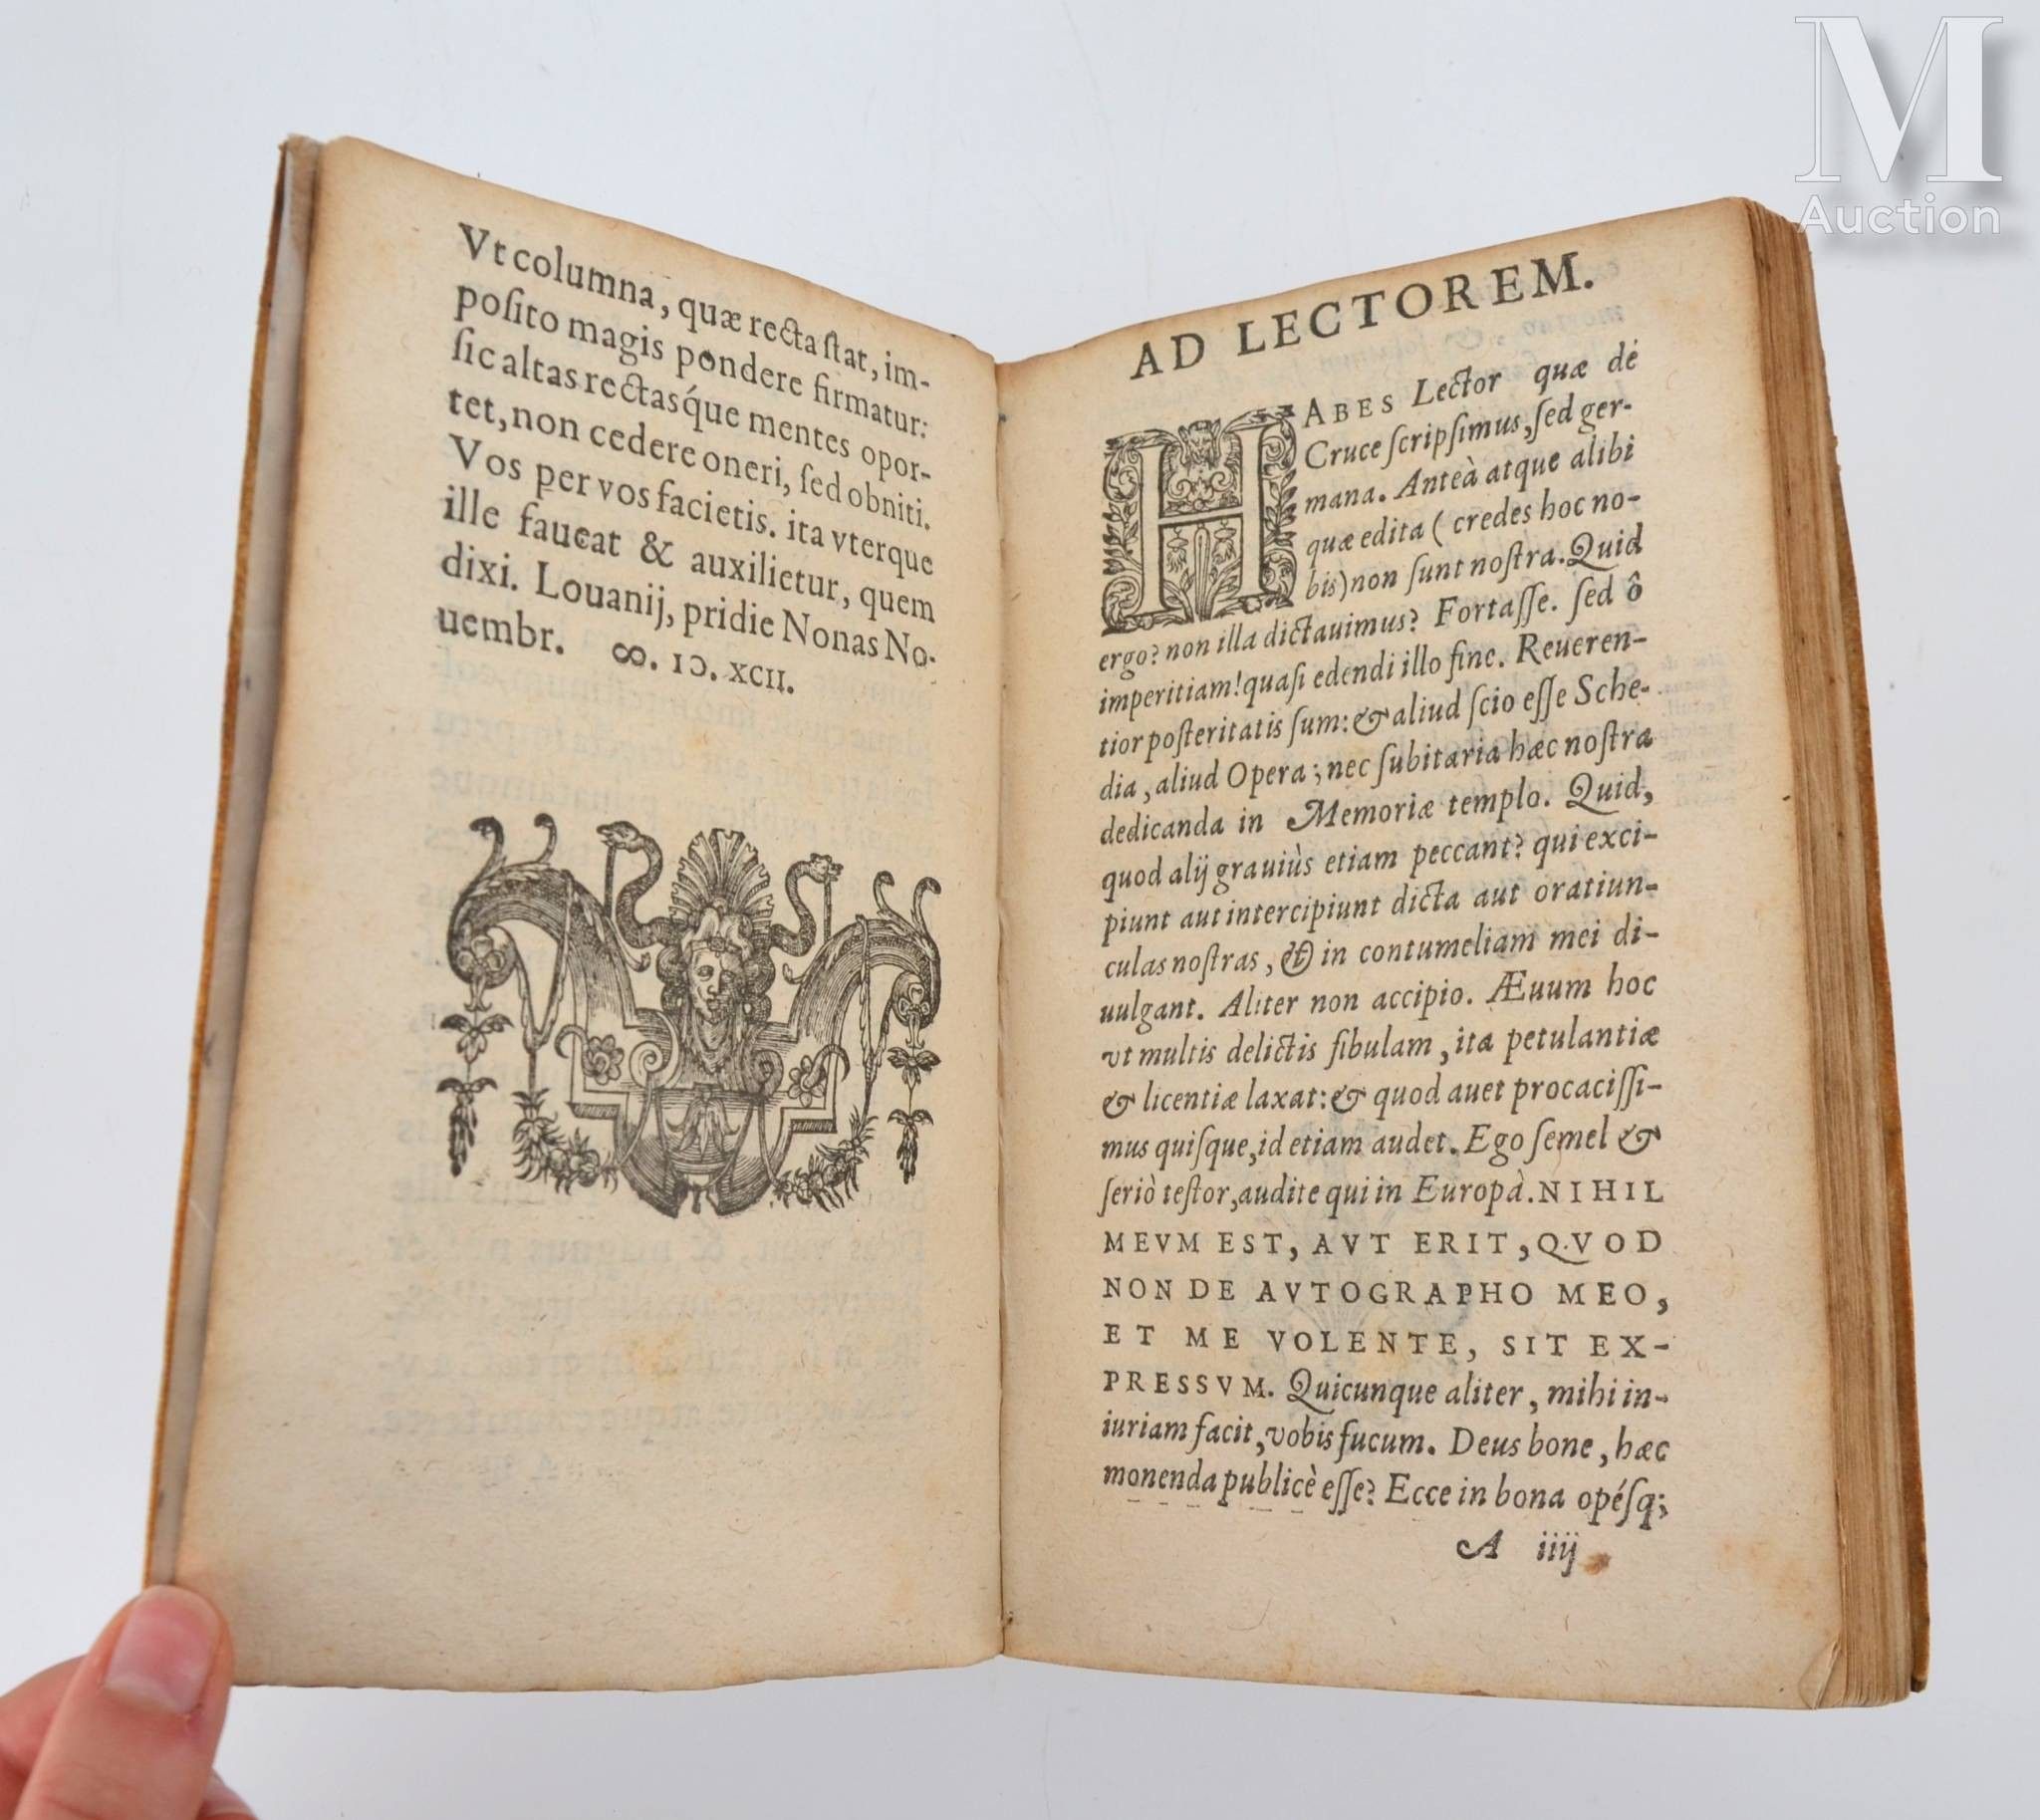 Vt columna, quæ recta ſtat, im-
poſito magis pondere firmatur:
ſic altas rectasq́ue mentes opor-
tet, non cedere oneri, ſed obniti.
Vos per vos facietis. ita vterque
ille faueat & auxilietur, quem
dixi. Louanij, pridie Nonas No-
uembr. ∞. IↃ. XCII.
AD LECTOREM.
HABES Lector quæ de
Cruce ſcripſimus, ſed ger-
mana. Anteà atque alibi
quæ edita (credes hoc no-
bis) non ſunt noſtra. Quid
ergo? non illa dictauimus? Fortaſſe. ſed ô
imperitiam! quaſi edendi illo fine. Reueren-
tior poſteritatis ſum: & aliud ſcio eſſe Sche-
dia, aliud Opera; nec ſubitaria hæc noſtra
dedicanda in Memoriæ templo. Quid,
quod alij grauiùs etiam peccant? qui exci-
piunt aut intercipiunt dicta aut oratiun-
culas noſtras, & in contumeliam mei di-
uulgant. Aliter non accipio. Æuum hoc
vt multis delictis fibulam, ita petulantiæ
& licentiæ laxat: & quod auet procaciſſi-
mus quiſque, id etiam audet. Ego ſemel &
ſeriò teſtor, audite qui in Europà. NIHIL
MEVM EST, AVT ERIT, QVOD
NON DE AVTOGRAPHO MEO,
ET ME VOLENTE, SIT EX-
PRESSVM. Quicunque aliter, mihi in-
iuriam facit, vobis fucum. Deus bone, hæc
monenda publicè eſſe? Ecce in bona opéſq;
A iiij
M
Auction